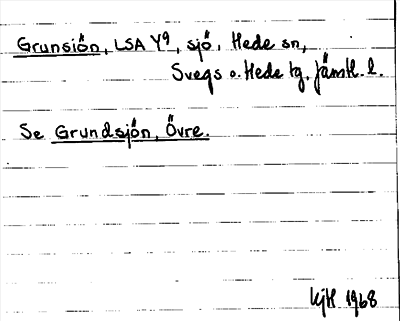 Grunsiön, LSA Y9, sjö, Hede sn,
Svegs o. Hede tg, Jämtl. l.
Se Grundsjön, Övre.
KjH 1968